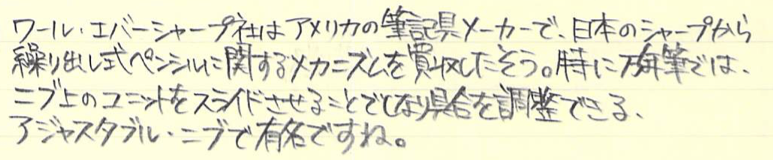 ワール・エバーシャープ社はアメリカの筆記具メーカーで、日本のシャープから
繰り出し式ペンシルに関するメカニズムを買収したそう。特に万年筆では、
ニブ上のユニットをスライドさせることでしなり具合を調整できる、
アジャスタブル・ニブで有名ですね。